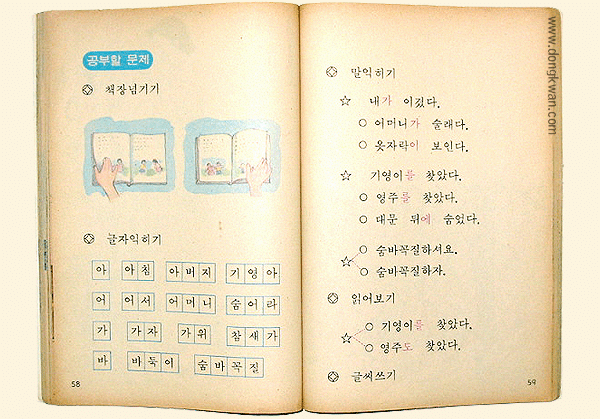 공부할 문제
책장넘기기
글자익히기
아 아침 아버지 기영아
어 어서 어머니 숨어라
가 가자 가위 참새가
바 바둑이 숨바꼭질
58
말익히기
☆ 내가 이겼다.
○ 어머니가 술래다.
○ 옷자락이 보인다.
☆ 기영이를 찾았다.
○ 영주를 찾았다.
○ 대문 뒤에 숨었다.
☆ ○ 숨바꼭질하셔요.
○ 숨바꼭질하자.
읽어보기
☆ ○ 기영이를 찾았다.
○ 영주도 찾았다.
글씨쓰기
59
www.dongkwan.com